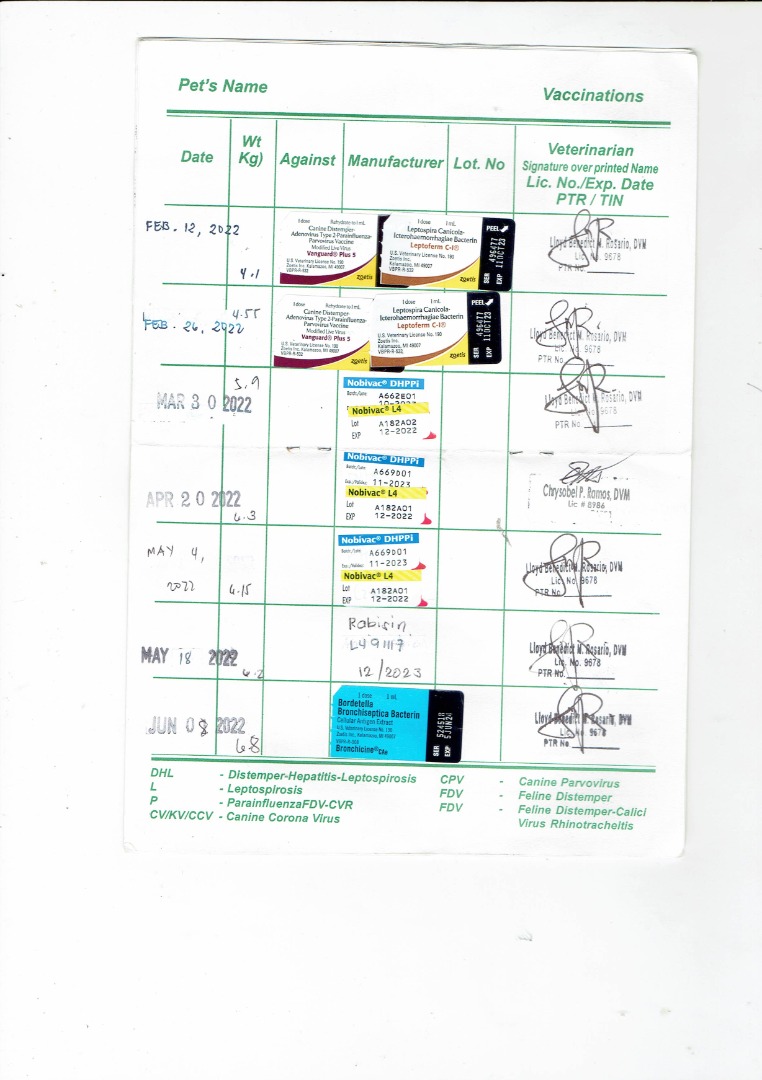 Pet's Name
Vaccinations
Date
Wt
Kg)
Against
Manufacturer
Lot. No
Veterinarian
Signature over printed Name
Lic. No./Exp. Date
PTR / TIN
FEB. 12, 2022
4.1
1 dose Rehydrate to 1 mL
Canine Distemper-
Adenovirus Type 2-Parainfluenza-
Parvovirus Vaccine
Modified Live Virus
Vanguard® Plus 5
U.S. Veterinary License No. 190
Zoetis Inc. Kalamazoo, MI 49007
zoetis
1 dose 1 mL
Leptospira Canicola-
Icterohaemorrhagiae Bacterin
Leptoferm C-I®
U.S. Veterinary License No. 190
Zoetis Inc.
Kalamazoo, MI 49007
VBPR-R-533
zoetis
PEEL
SER 496477
EXP 11OCT23
Lloyd Benedict M. Rosario, DVM
Lic. No. 9678
PTR No.
FEB. 26, 2022
4.55
1 dose Rehydrate to 1 mL
Canine Distemper-
Adenovirus Type 2-Parainfluenza-
Parvovirus Vaccine
Modified Live Virus
Vanguard® Plus 5
U.S. Veterinary License No. 190
Zoetis Inc.
Kalamazoo, MI 49007
VBPR-R-532
zoetis
1 dose 1 mL
Leptospira Canicola-
Icterohaemorrhagiae Bacterin
Leptoferm C-I®
U.S. Veterinary License No. 190
Zoetis Inc.
Kalamazoo, MI 49007
VBPR-R-533
zoetis
PEEL
SER 496477
EXP 11OCT23
Lloyd Benedict M. Rosario, DVM
Lic. No. 9678
PTR No.
MAR 30 2022
5.9
Nobivac® DHPPi
A662E01
Nobivac® L4
Lot A182A02
EXP 12-2022
Lloyd Benedict M. Rosario, DVM
Lic. No. 9678
PTR No.
APR 20 2022
6.3
Nobivac® DHPPi
A669D01
11-2023
Nobivac® L4
Lot A182A01
EXP 12-2022
Chrysobel P. Ramos, DVM
Lic # 8986
MAY 4,
2022
6.15
Nobivac® DHPPi
A669D01
11-2023
Nobivac® L4
Lot A182A01
EXP 12-2022
Lloyd Benedict M. Rosario, DVM
Lic. No. 9678
PTR No.
MAY 18 2022
6.2
Rabisin
L491117
12/2023
Lloyd Benedict M. Rosario, DVM
Lic. No. 9678
PTR No.
JUN 08 2022
6.8
1 dose 1 mL
Bordetella
Bronchiseptica Bacterin
Cellular Antigen Extract
U.S. Veterinary License No. 190
Zoetis Inc. Kalamazoo, MI 49007
Bronchicine® CAe
SER 524518
EXP 5JUN24
Lloyd Benedict M. Rosario, DVM
Lic. No. 9678
PTR No.
DHL - Distemper-Hepatitis-Leptospirosis
L - Leptospirosis
P - ParainfluenzaFDV-CVR
CV/KV/CCV - Canine Corona Virus
CPV - Canine Parvovirus
FDV - Feline Distemper
FDV - Feline Distemper-Calici
Virus Rhinotracheitis